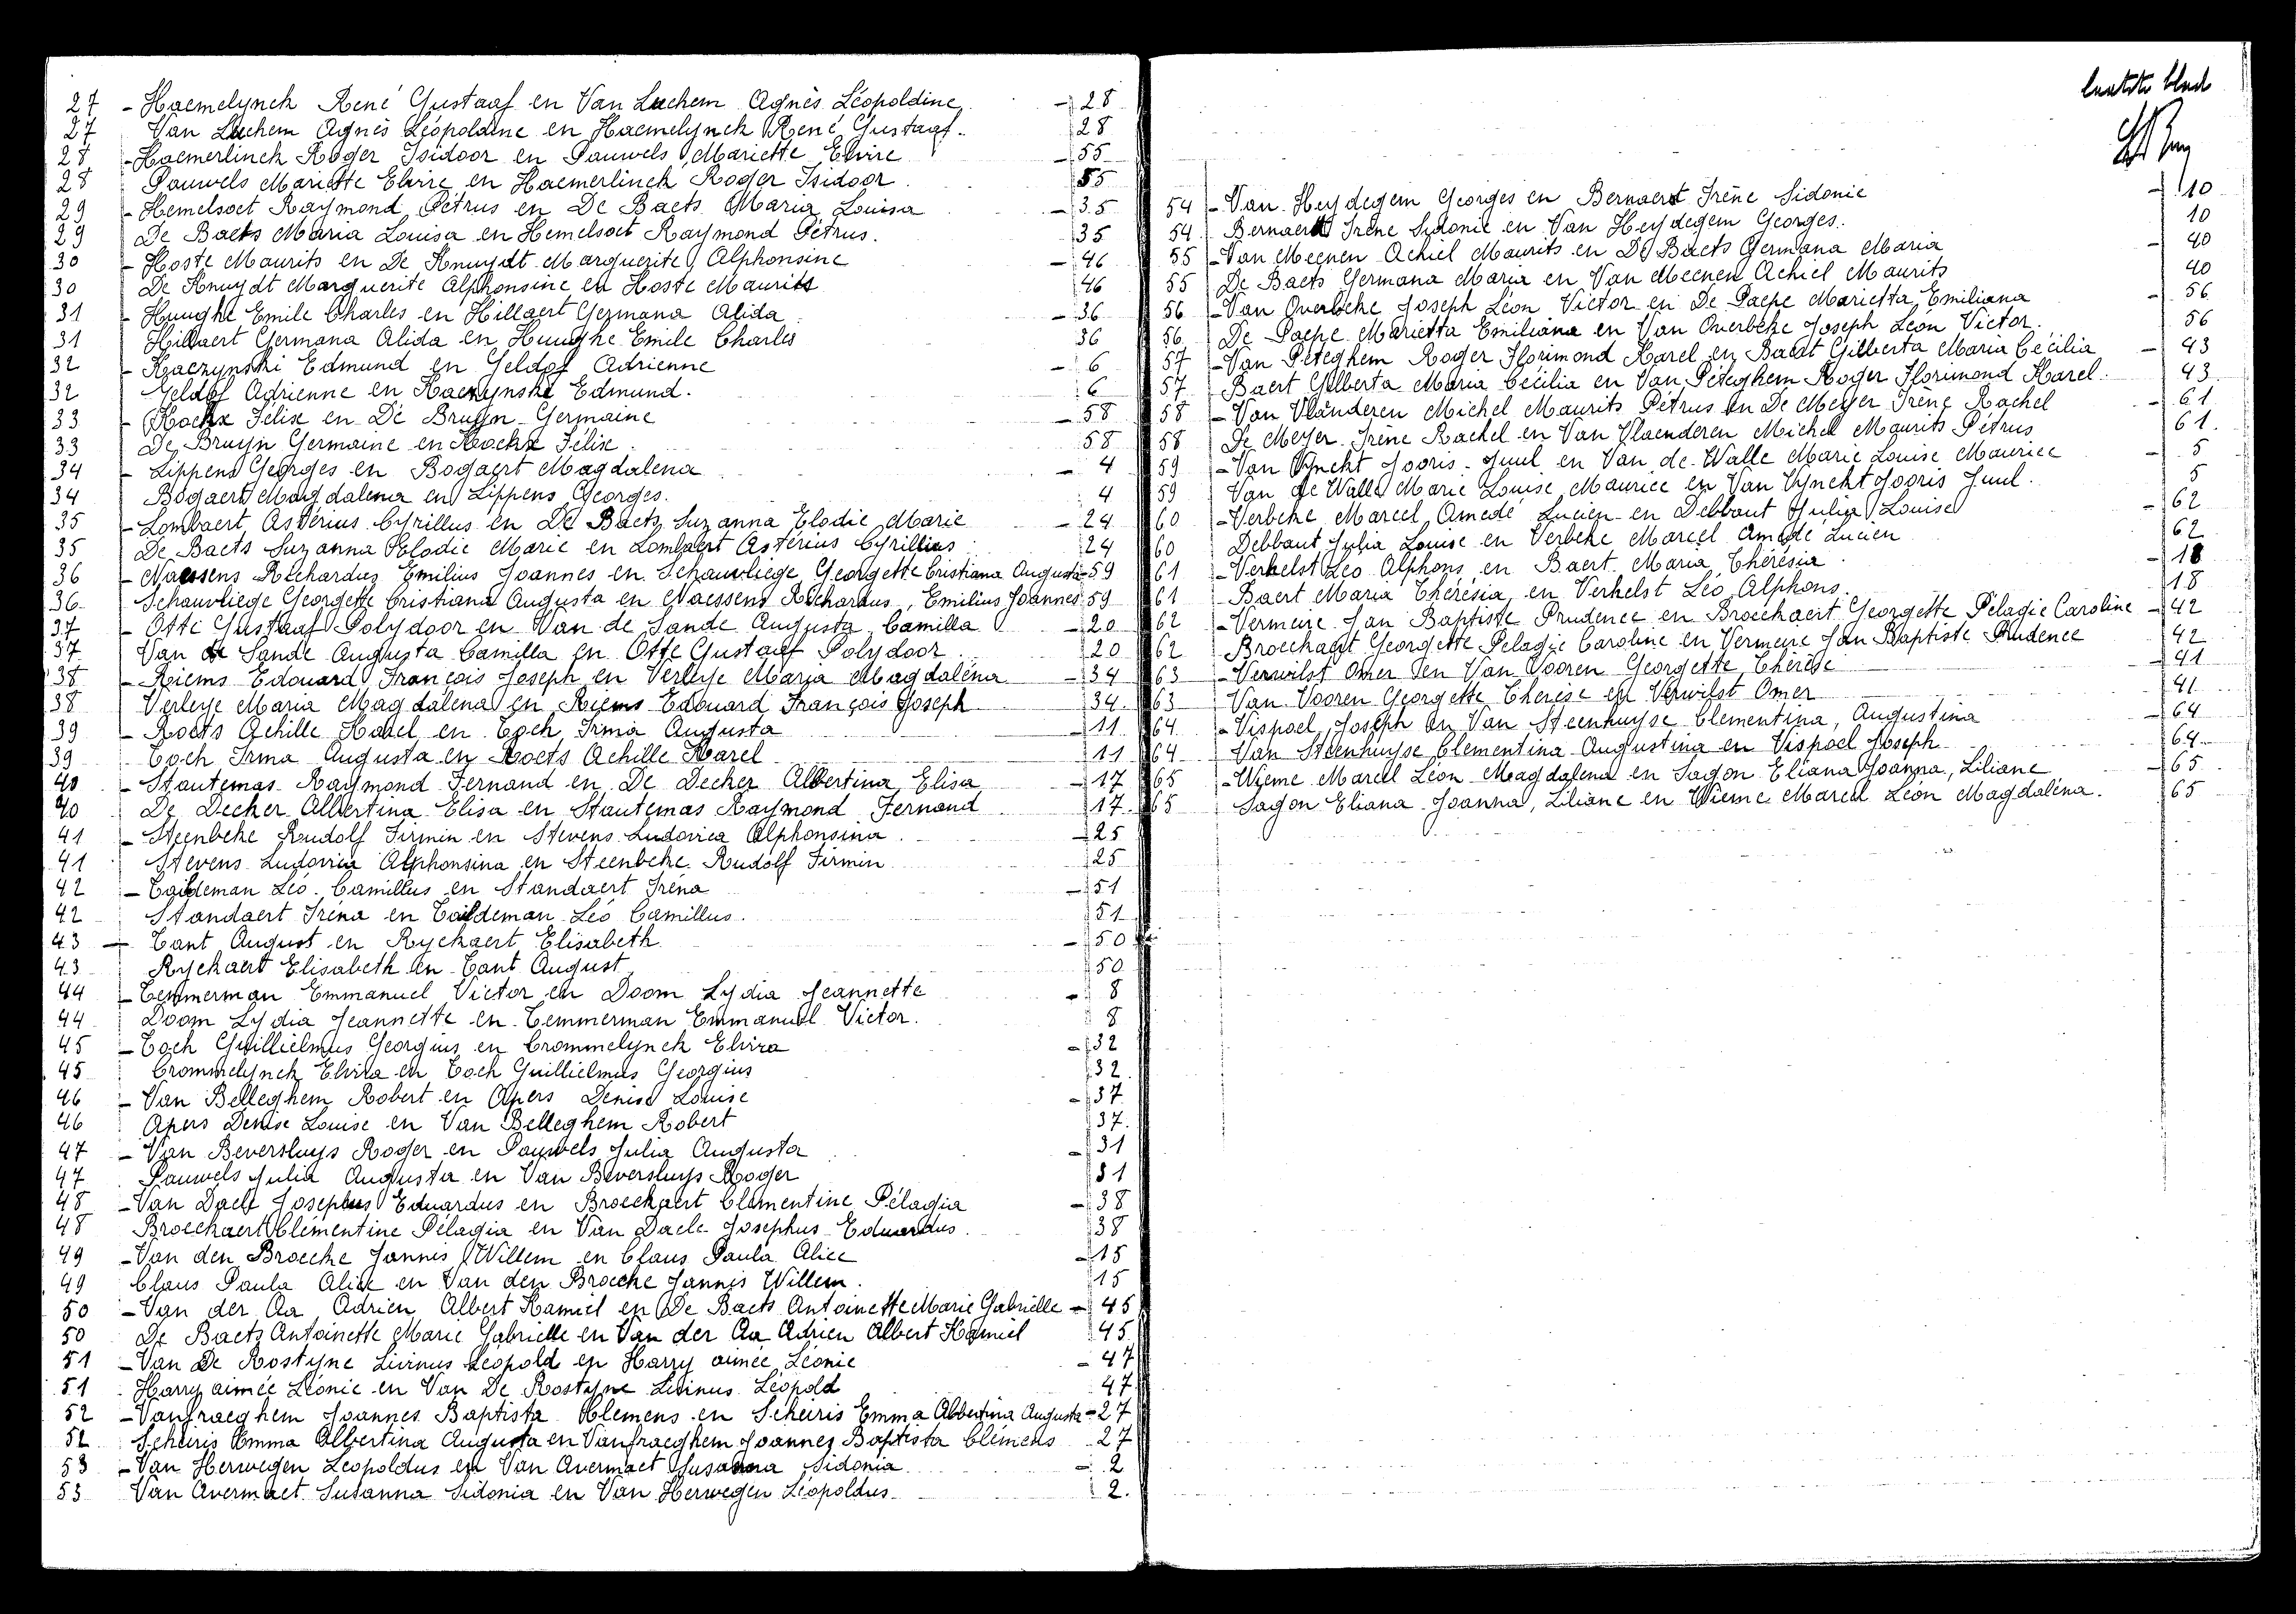 27 - Haemelynck René Gustaaf en Van Luchem Agnès Léopoldine - 28
27 Van Luchem Agnès Léopoldine en Haemelynck René Gustaaf. 28
28 - Haemerlinck Roger Isidoor en Pauwels Mariette Elvire - 55
28 Pauwels Mariette Elvire en Haemerlinck Roger Isidoor. 55
29 - Hemelsoet Raymond Petrus en De Baets Maria Louisa - 35
29 De Baets Maria Louisa en Hemelsoet Raymond Petrus. 35
30 - Hoste Maurits en De Knuydt Marguerite Alphonsine - 46
30 De Knuydt Marguerite Alphonsine en Hoste Maurits 46
31 - Huughe Emile Charles en Hillaert Germana Alida - 36
31 Hillaert Germana Alida en Huughe Emile Charles 36
32 - Kaczynski Edmund en Geldof Adrienne - 6
32 Geldof Adrienne en Kaczynski Edmund. 6
33 - Kockx Felix en De Bruyn Germaine - 58
33 De Bruyn Germaine en Kockx Félix. 58
34 - Lippens Georges en Bogaert Magdalena - 4
34 Bogaert Magdalena en Lippens Georges. 4
35 - Lombaert Astérius Cyrillus en De Baets Suzanna Elodie Marie - 24
35 De Baets Suzanna Elodie Marie en Lombaert Astérius Cyrillius 24
36 - Naessens Richardus Emilius Joannes en Schauvliege Georgette Cristiana Augusta - 59
36 Schauvliege Georgette Cristiana Augusta en Naessens Richardus, Emilius Joannes 59
37 - Otte Gustaaf Polydoor en Van de Sande Augusta Camilla - 20
37 Van de Sande Augusta Camilla en Otte Gustaaf Polydoor. 20
38 - Riems Edouard François Joseph en Verleye Maria Magdaléna - 34
38 Verleye Maria Magdaléna en Riems Edouard François Joseph 34
39 - Roets Achille Karel en Toch Irma Augusta - 11
39 Toch Irma Augusta en Roets Achille Karel 11
40 - Stautemas Raymond Fernand en De Decker Albertina Elisa - 17
40 De Decker Albertina Elisa en Stautemas Raymond Fernand 17
41 - Steenbeke Rudolf Firmin en Stevens Ludovica Alphonsina - 25
41 Stevens Ludovica Alphonsina en Steenbeke Rudolf Firmin 25
42 - Taildeman Léo Camillus en Standaert Iréna - 51
42 Standaert Iréna en Taildeman Léo Camillus. 51
43 - Tant August en Ryckaert Elisabeth - 50
43 Ryckaert Elisabeth en Tant August 50
44 - Temmerman Emmanuel Victor en Doom Lydia Jeannette - 8
44 Doom Lydia Jeannette en Temmerman Emmanuel Victor. 8
45 - Toch Guillielmus Georgius en Crommelynck Elvira - 32
45 Crommelynck Elvira en Toch Guillielmus Georgius 32
46 - Van Belleghem Robert en Apers Denise Louise - 37
46 Apers Denise Louise en Van Belleghem Robert 37
47 - Van Beversluys Roger en Pauwels Julia Augusta - 31
47 Pauwels Julia Augusta en Van Beversluys Roger 31
48 - Van Daele Josephus Eduardus en Broeckaert Clementine Pélagia - 38
48 Broeckaert Clémentine Pélagia en Van Daele Josephus Eduardus. 38
49 - Van den Broecke Jannis Willem en Claus Paula Alice - 15
49 Claus Paula Alice en Van den Broecke Jannis Willem. 15
50 - Van der Aa Adrien Albert Kamiel en De Baets Antoinette Marie Gabrielle - 45
50 De Baets Antoinette Marie Gabrielle en Van der Aa Adrien Albert Kamiel 45
51 - Van De Rostyne Livinus Léopold en Harry aimée Léonie - 47
51 Harry aimée Léonie en Van De Rostyne Livinus Léopold 47
52 - Vanfraeghem Joannes Baptista Clemens en Scheiris Emma Albertina Augusta - 27
52 Scheiris Emma Albertina Augusta en Vanfraeghem Joannes Baptista Clémens 27
53 - Van Herwegen Léopoldus en Van Avermaet Susanna Sidonia - 2
53 Van Avermaet Susanna Sidonia en Van Herwegen Léopoldus 2.
laatste blad
54 - Van Heydegem Georges en Bernaert Irène Sidonie - 10
54 Bernaert Irène Sidonie en Van Heydegem Georges. 10
55 - Van Meenen Achiel Maurits en De Baets Germana Maria - 40
55 De Baets Germana Maria en Van Meenen Achiel Maurits 40
56 - Van Overbeke Joseph Léon Victor en De Paepe Marietta Emiliana - 56
56 De Paepe Marietta Emiliana en Van Overbeke Joseph Léon Victor. 56
57 - Van Peteghem Roger Florimond Karel en Baert Gilberta Maria Cécilia - 43
57 Baert Gilberta Maria Cécilia en Van Péteghem Roger Florimond Karel. 43
58 - Van Vlanderen Michel Maurits Pétrus en De Meyer Irène Rachel - 61
58 De Meyer Irène Rachel en Van Vlaenderen Michel Maurits Pétrus 61.
59 - Van Vynckt Jooris Juul en Van de Walle Marie Louise Maurice - 5
59 Van de Walle Marie Louise Maurice en Van Vynckt Jooris Juul. 5
60 - Verbeke Marcel Amedé Lucien en Debbaut Julia Louise - 62
60 Debbaut Julia Louise en Verbeke Marcel Amedé Lucien 62
61 - Verhelst Léo Alphons en Baert Maria Thérésia - 18
61 Baert Maria Thérésia en Verhelst Léo Alphons. 18
62 - Vermeire Jan Baptiste Prudence en Broeckaert Georgette Pélagie Caroline - 42
62 Broeckaert Georgette Pelagie Caroline en Vermeire Jan Baptiste Prudence 42
63 - Verwilst Omer en Van Vooren Georgette Thérèse - 41
63 Van Vooren Georgette Thérèse en Verwilst Omer 41
64 - Vispoel Joseph en Van Steenhuyse Clementina, Augustina - 64
64 Van Steenhuyse Clementina Augustina en Vispoel Joseph 64
65 - Wieme Marcel Léon Magdalena en Sagon Eliana Joanna, Liliane - 65
65 Sagon Eliana Joanna, Liliane en Wieme Marcel Léon Magdaléna. 65